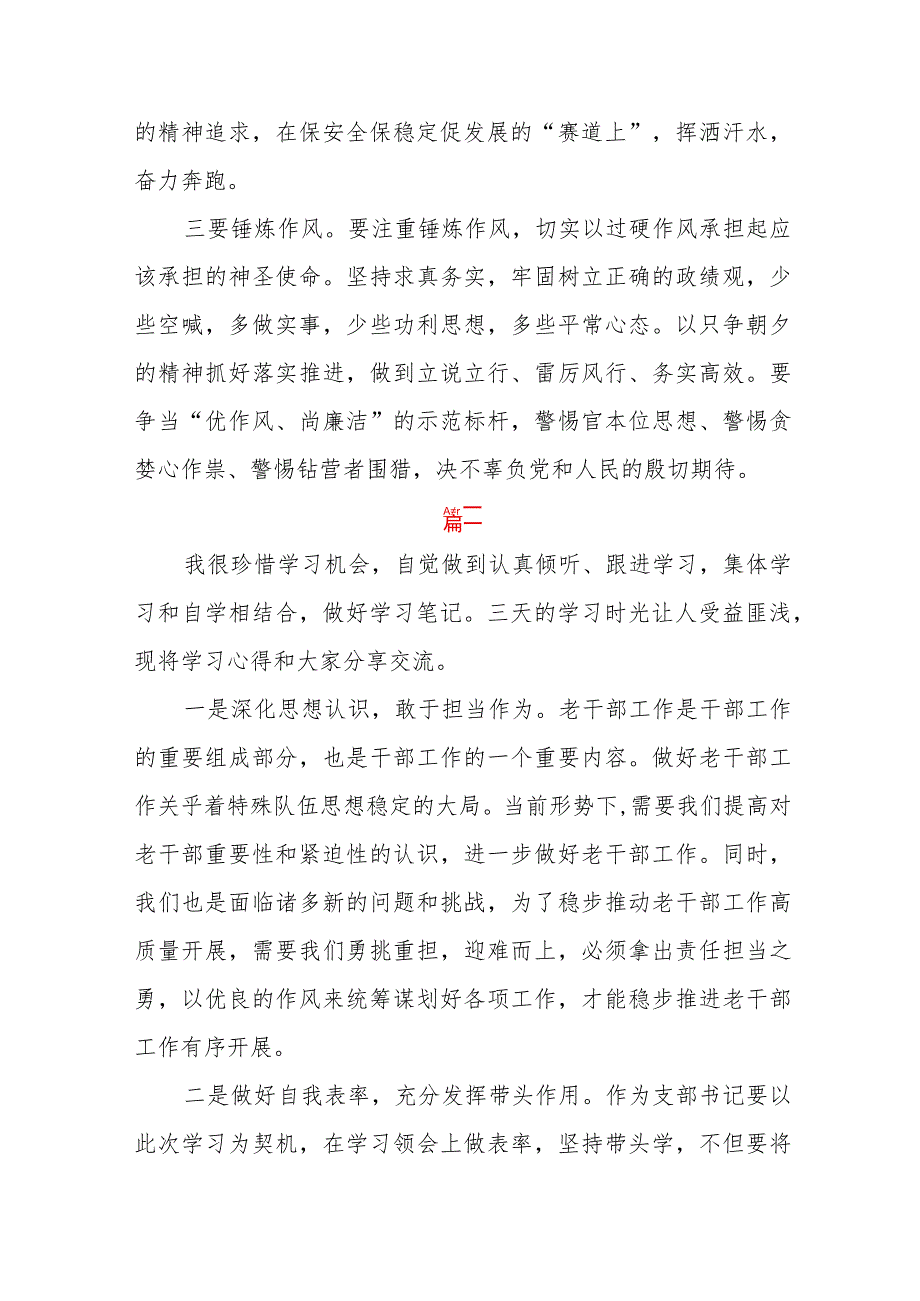 的精神追求，在保安全保稳定促发展的“赛道上”，挥洒汗水，
奋力奔跑。
三要锤炼作风。要注重锤炼作风，切实以过硬作风承担起应
该承担的神圣使命。坚持求真务实，牢固树立正确的政绩观，少
些空喊，多做实事，少些功利思想，多些平常心态。以只争朝夕
的精神抓好落实推进，做到立说立行、雷厉风行、务实高效。要
争当“优作风、尚廉洁”的示范标杆，警惕官本位思想、警惕贪
婪心作祟、警惕钻营者围猎，决不辜负党和人民的殷切期待。
篇二
我很珍惜学习机会，自觉做到认真倾听、跟进学习，集体学
习和自学相结合，做好学习笔记。三天的学习时光让人受益匪浅，
现将学习心得和大家分享交流。
一是深化思想认识，敢于担当作为。老干部工作是干部工作
的重要组成部分，也是干部工作的一个重要内容。做好老干部工
作关乎着特殊队伍思想稳定的大局。当前形势下,需要我们提高对
老干部重要性和紧迫性的认识，进一步做好老干部工作。同时，
我们也是面临诸多新的问题和挑战，为了稳步推动老干部工作高
质量开展，需要我们勇挑重担，迎难而上，必须拿出责任担当之
勇，以优良的作风来统筹谋划好各项工作，才能稳步推进老干部
工作有序开展。
二是做好自我表率，充分发挥带头作用。作为支部书记要以
此次学习为契机，在学习领会上做表率，坚持带头学，不但要将